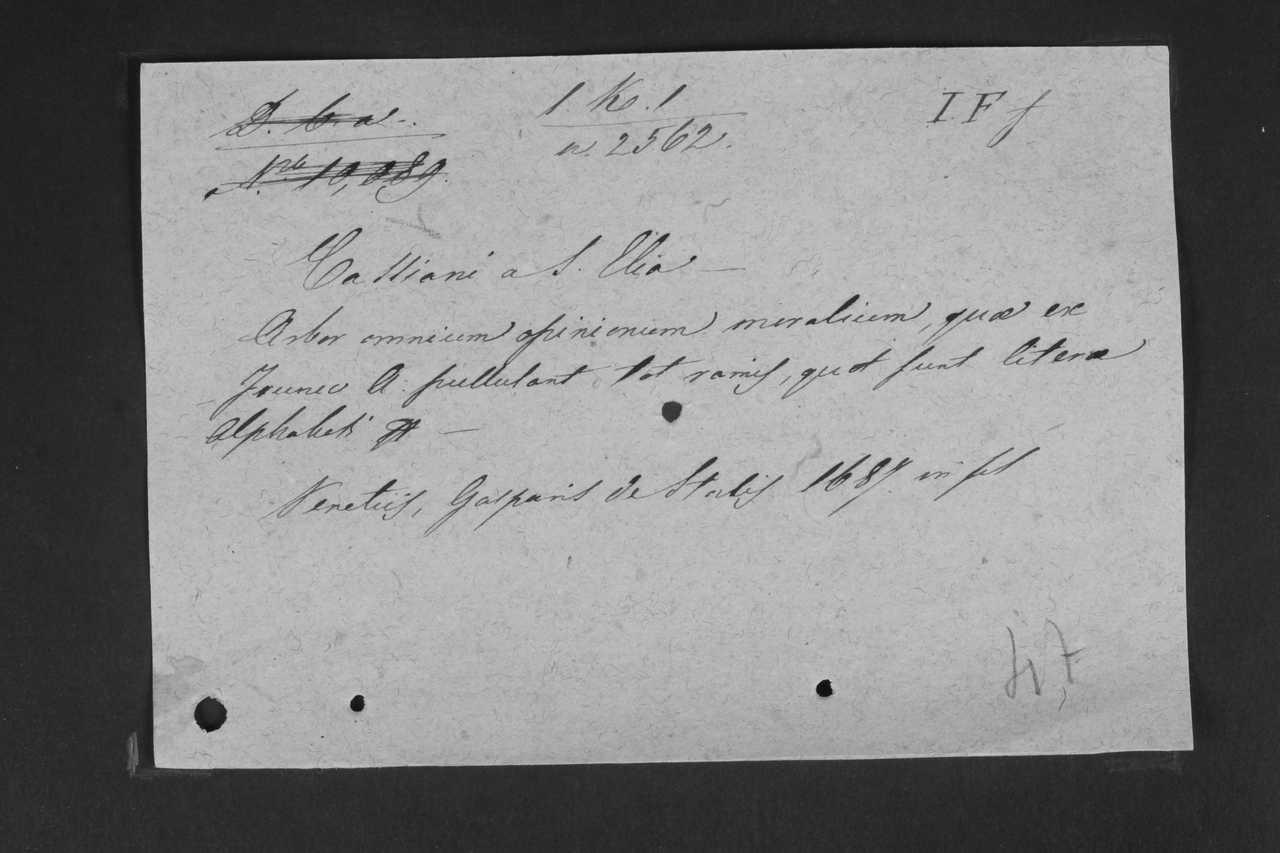 D. b. a.
Nro 10,089.
1 K. 1
n. 2562.
I F f
Cassiani a S. Elia —
Arbor omnium opinionum moralium, quae ex
Trunco A. pullulant tot ramis, quot sunt literae
Alphabeti —
Venetiis, Gasparis de Storlis 1687 in fol
47